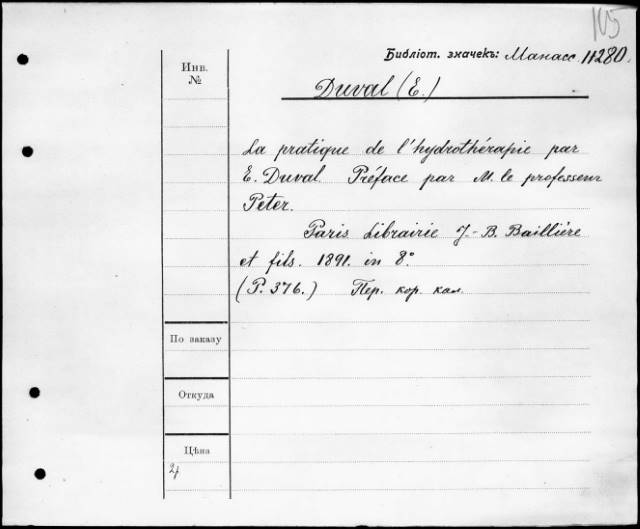 105
Библіот. значекъ: Манасс. 11280.
Инв.
№
Duval (E.)
La pratique de l'hydrothérapie par
E. Duval. Préface par M. le professeur
Peter.
Paris. Librairie J.-B. Baillière
et fils. 1891. in 8°
(P. 376.) Пер. кор. кал.
По заказу
Откуда
Цѣна